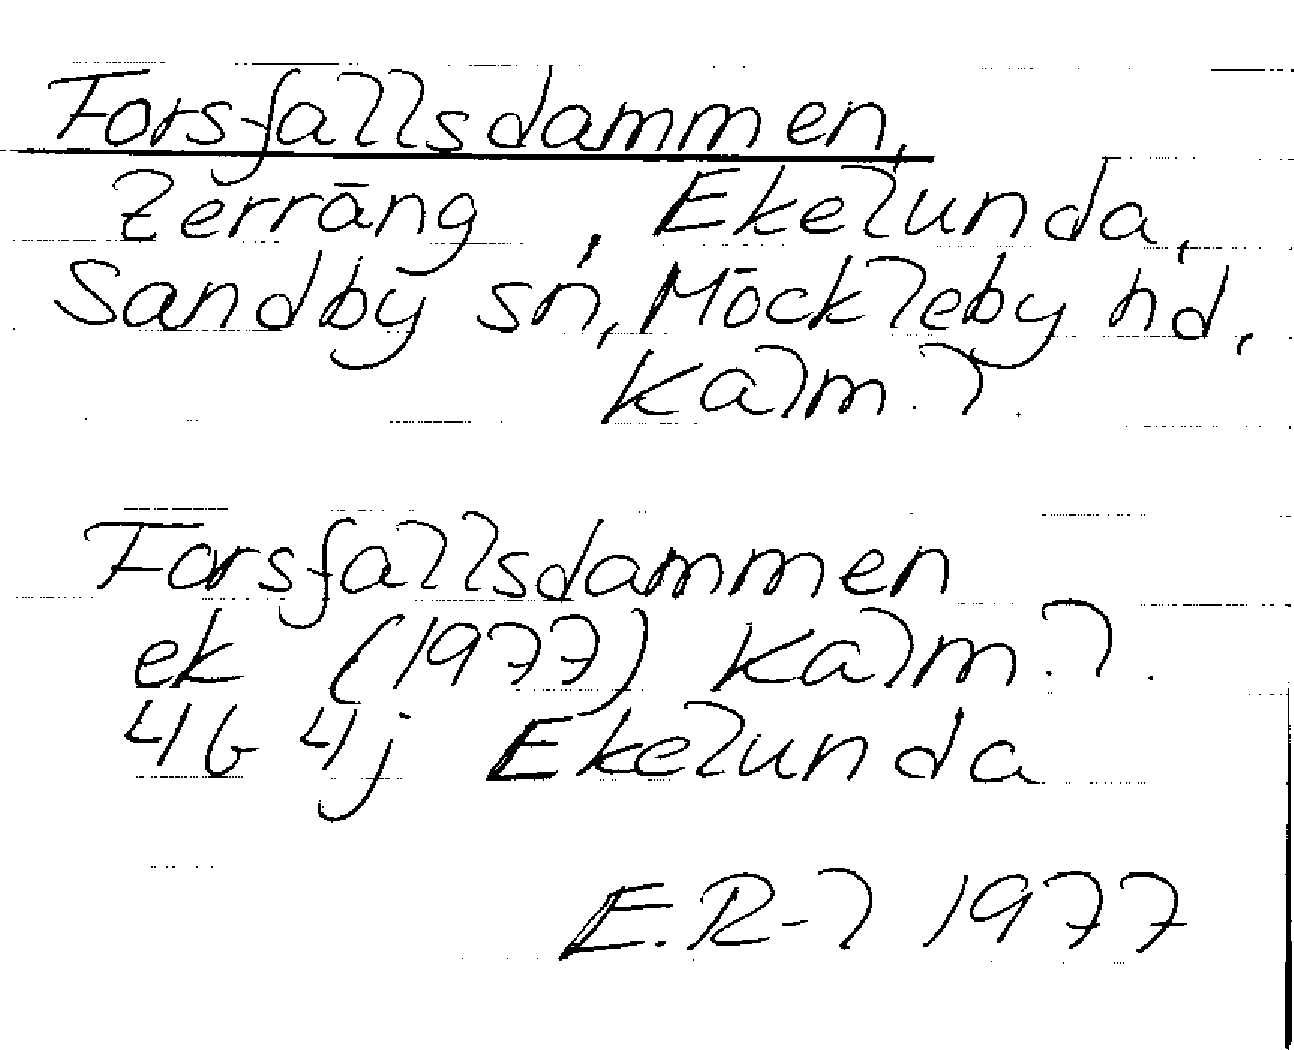 Forsfallsdammen,
Terräng, Ekelunda,
Sandby sn, Möckleby hd,
Kalm. l.
Forsfallsdammen
ek (1977) Kalm. l.
4G 4j Ekelunda
E.R-l 1977